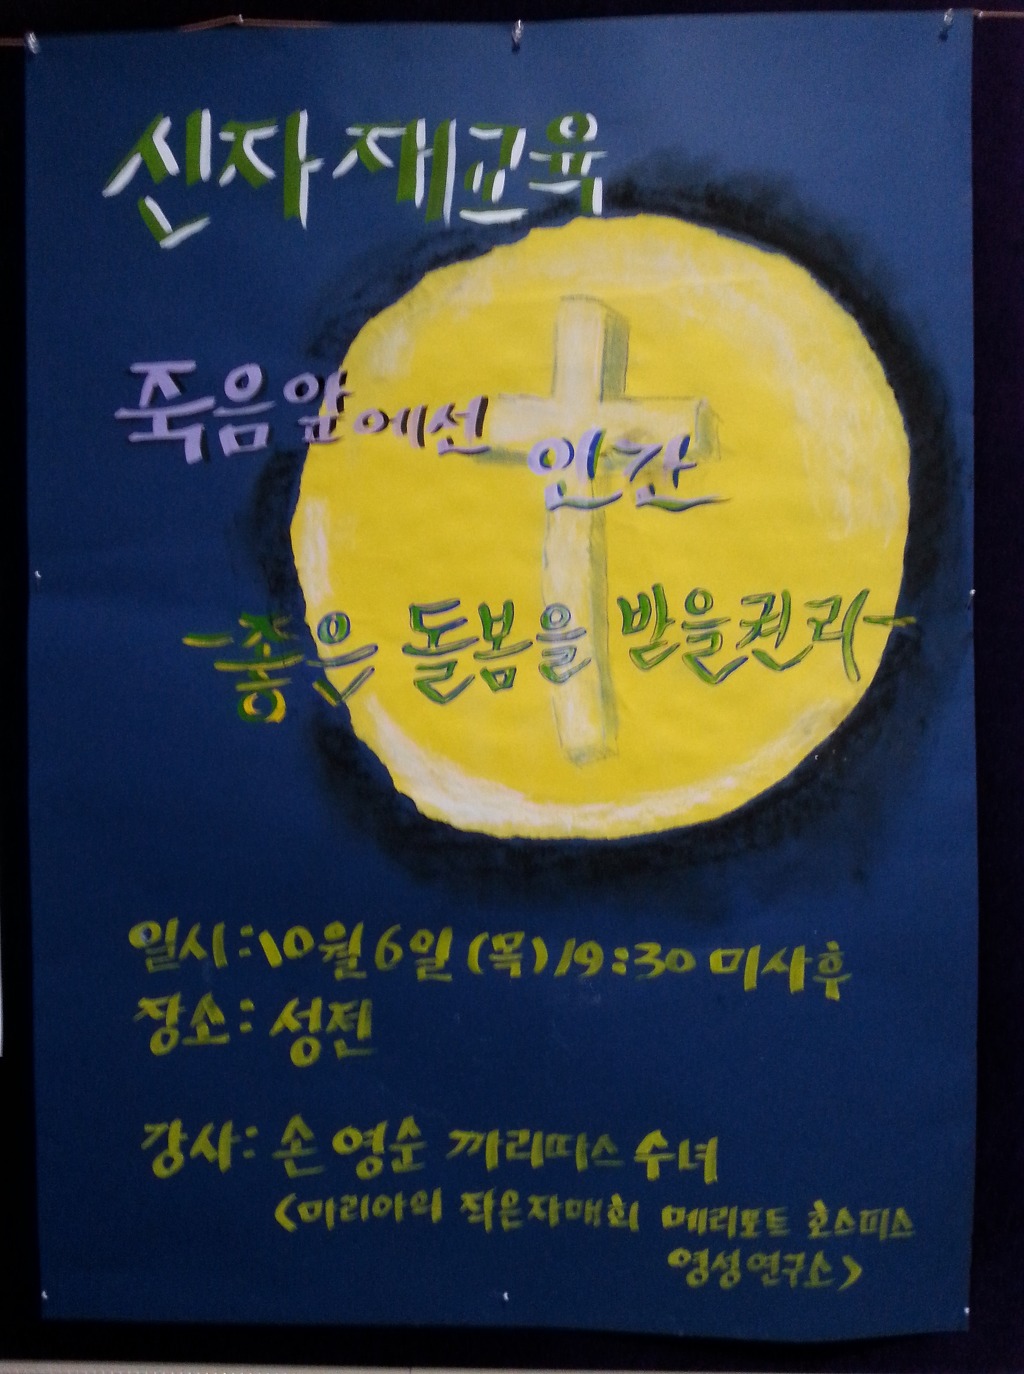 신자 재교육
죽음 앞에선 인간
-좋은 돌봄을 받을 권리-
일시:10월 6일 (목) 19:30 미사후
장소: 성전
강사: 손 영순 까리따스 수녀
<마리아의 작은자매회 메리포트 호스피스
영성연구소>